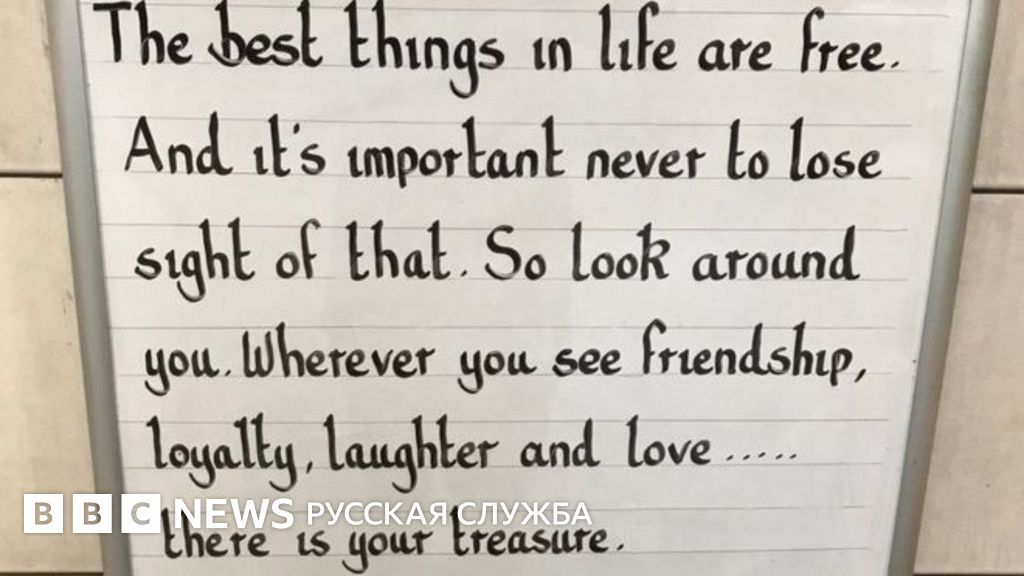 The best things in life are free.
And it's important never to lose
sight of that. So look around
you. Wherever you see friendship,
loyalty, laughter and love .....
BBC NEWS РУССКАЯ СЛУЖБА
there is your treasure.